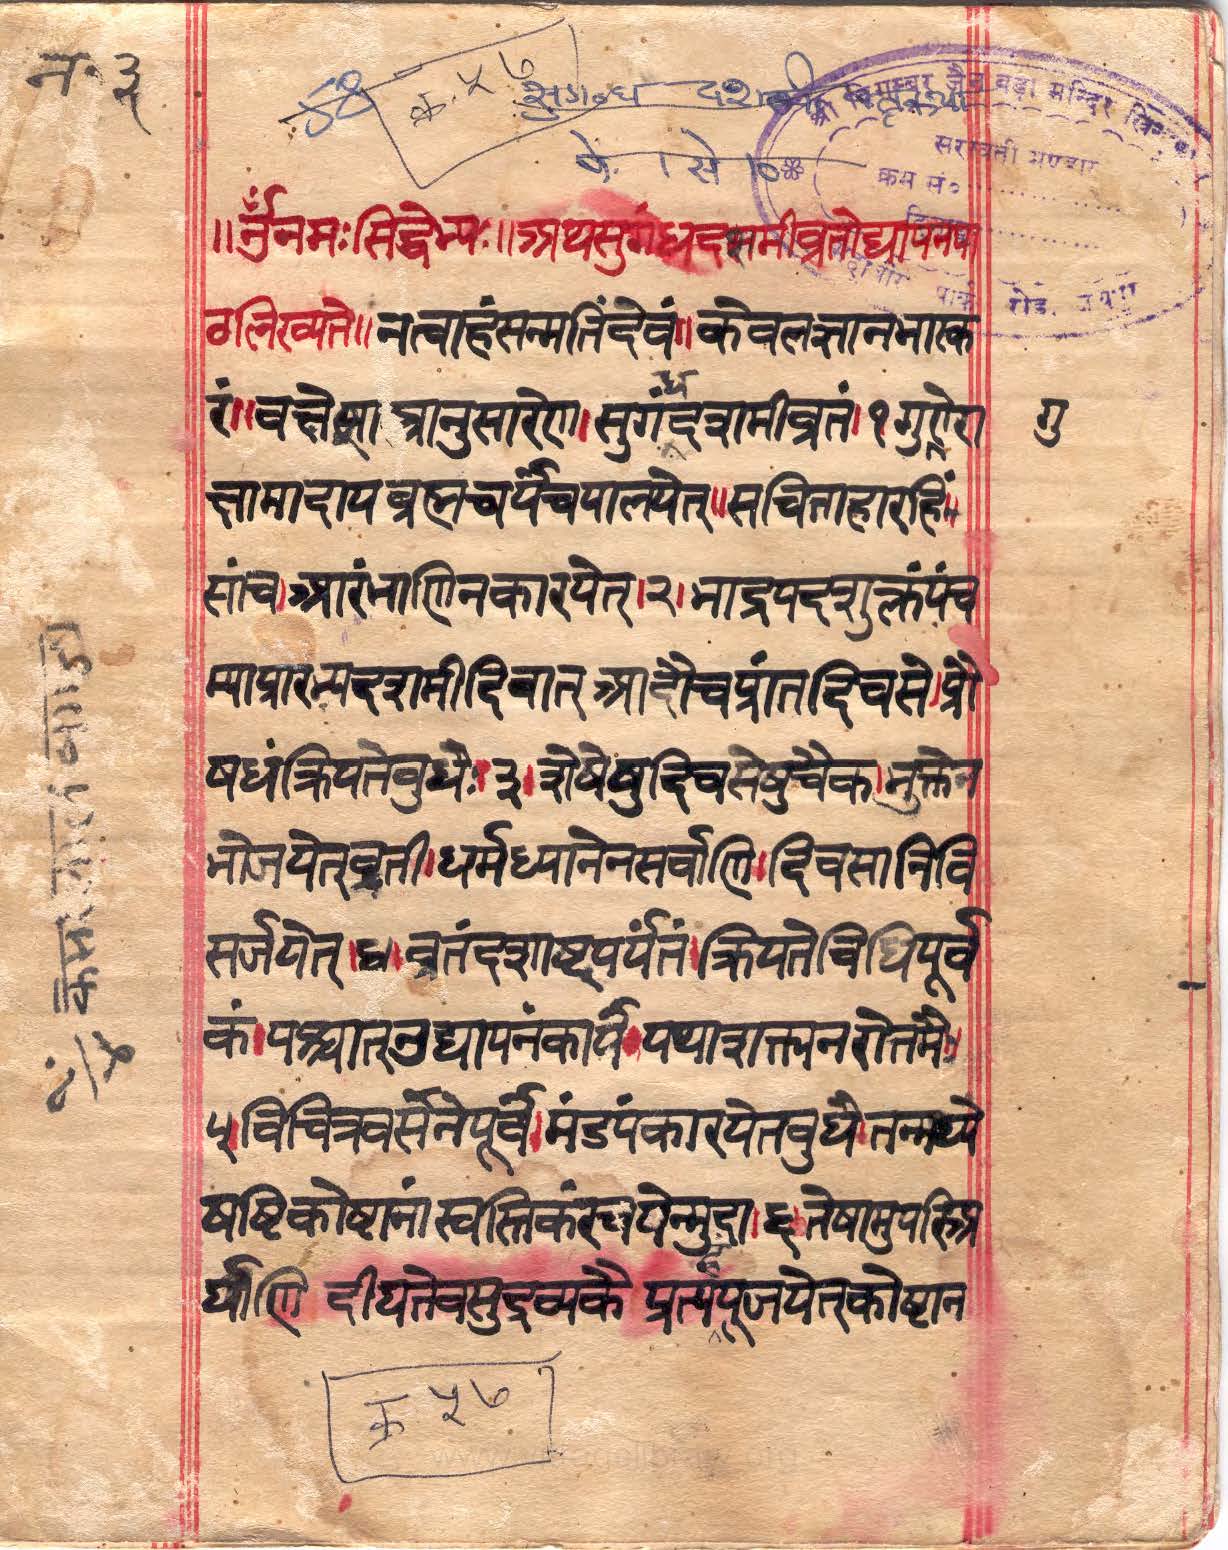 न॰ ३
क्र. ५७
सुगन्ध दशमी
कृ. १ से १०
सरस्वती भण्डार
क्रम सं०
॥ ॐनमःसिद्धेभ्यः॥अथसुगंधदसमीव्रतोद्यापनपा
ठलिख्यते॥नत्वाहंसन्मतिंदेवं॥केवलज्ञानभास्क
रं॥वक्षेशास्त्रानुसारेण।सुगंधदशमीव्रतं।१गुरोरा
गु
ज्ञामादाय ब्रह्मचर्यंचपालयेत्॥सचित्ताहारहिं॥
सांच।आरंभाणिनकारयेत्।२।भाद्रपदशुक्लपंच
म्याप्रारभ्यदशमीदिवात् आदौचप्रांतदिवसे।प्रो
षधंक्रियतेबुधैः।३।शेषेषुदिवसेषुचैक।भुक्तेन
भोजयेत्व्रती।धर्मध्यानेनसर्वाणि।दिवसानिवि
सर्जयेत्।४।व्रतंदशाष्टपर्यंतं।क्रियतेविधिपूर्व
कं।पश्चात्उद्यापनंकार्यं।यथाशक्त्यानरोत्तमैः।
५।विचित्रवर्सेनेपूर्वं।मंडपंकारयेतबुधै।तन्मध्ये
षष्टिकोष्टानां स्वस्तिकंरचयेन्मुदा।६।तेषामुपरिअ
र्घाणि दीयतेवसुद्रव्यकै प्रत्येपूजयेत्कोष्टान
क्र ५७